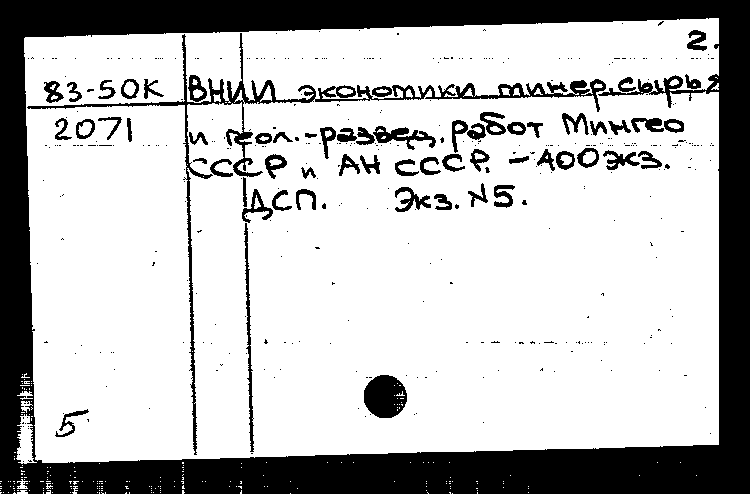 2.
83-50К ВНИИ экономики минер. сырья
2071 и геол.-развед. работ Мингео
СССР и АН СССР. - 400экз.
ДСП. Экз. №5.
5